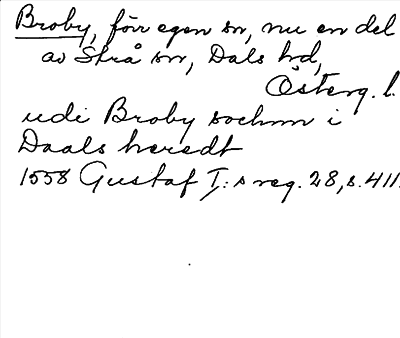 Broby, förr egen sn, nu en del
av Strå sn, Dals hd,
Österg. l.
udi Broby sochnn i
Daals heredt
1558 Gustaf I:s reg. 28, s. 411.